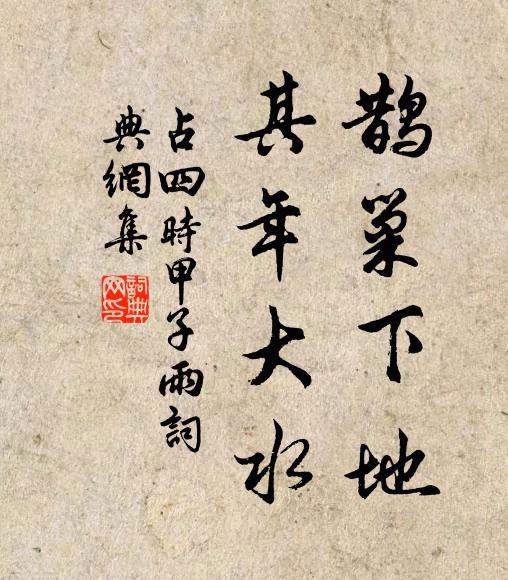 鵲巢下地
其年大水
占四時甲子雨詞
典網集
詞典網印